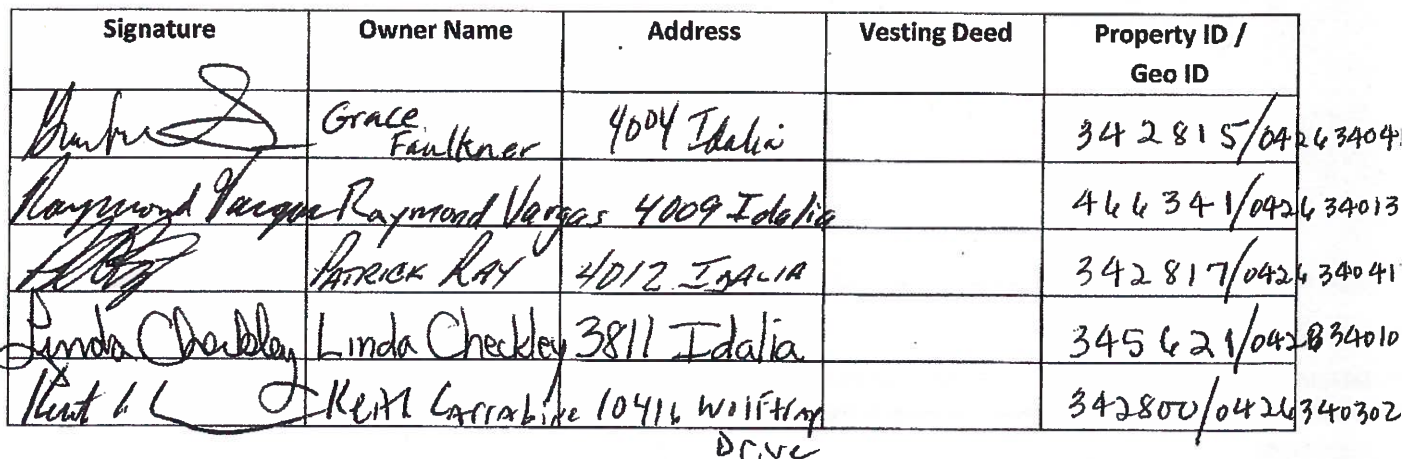 Signature Owner Name Address Vesting Deed Property ID /
Geo ID
Grace Faulkner 4004 Idalia 342815/042634041
Raymond Vargas Raymond Vargas 4009 Idalia 466341/042634013
PATRICK RAY 4012 IDALIA 342817/042634041
Linda Checkley Linda Checkley 3811 Idalia 345621/042834010
Keith 10416 Wolftrap 342800/0426340302
Drive